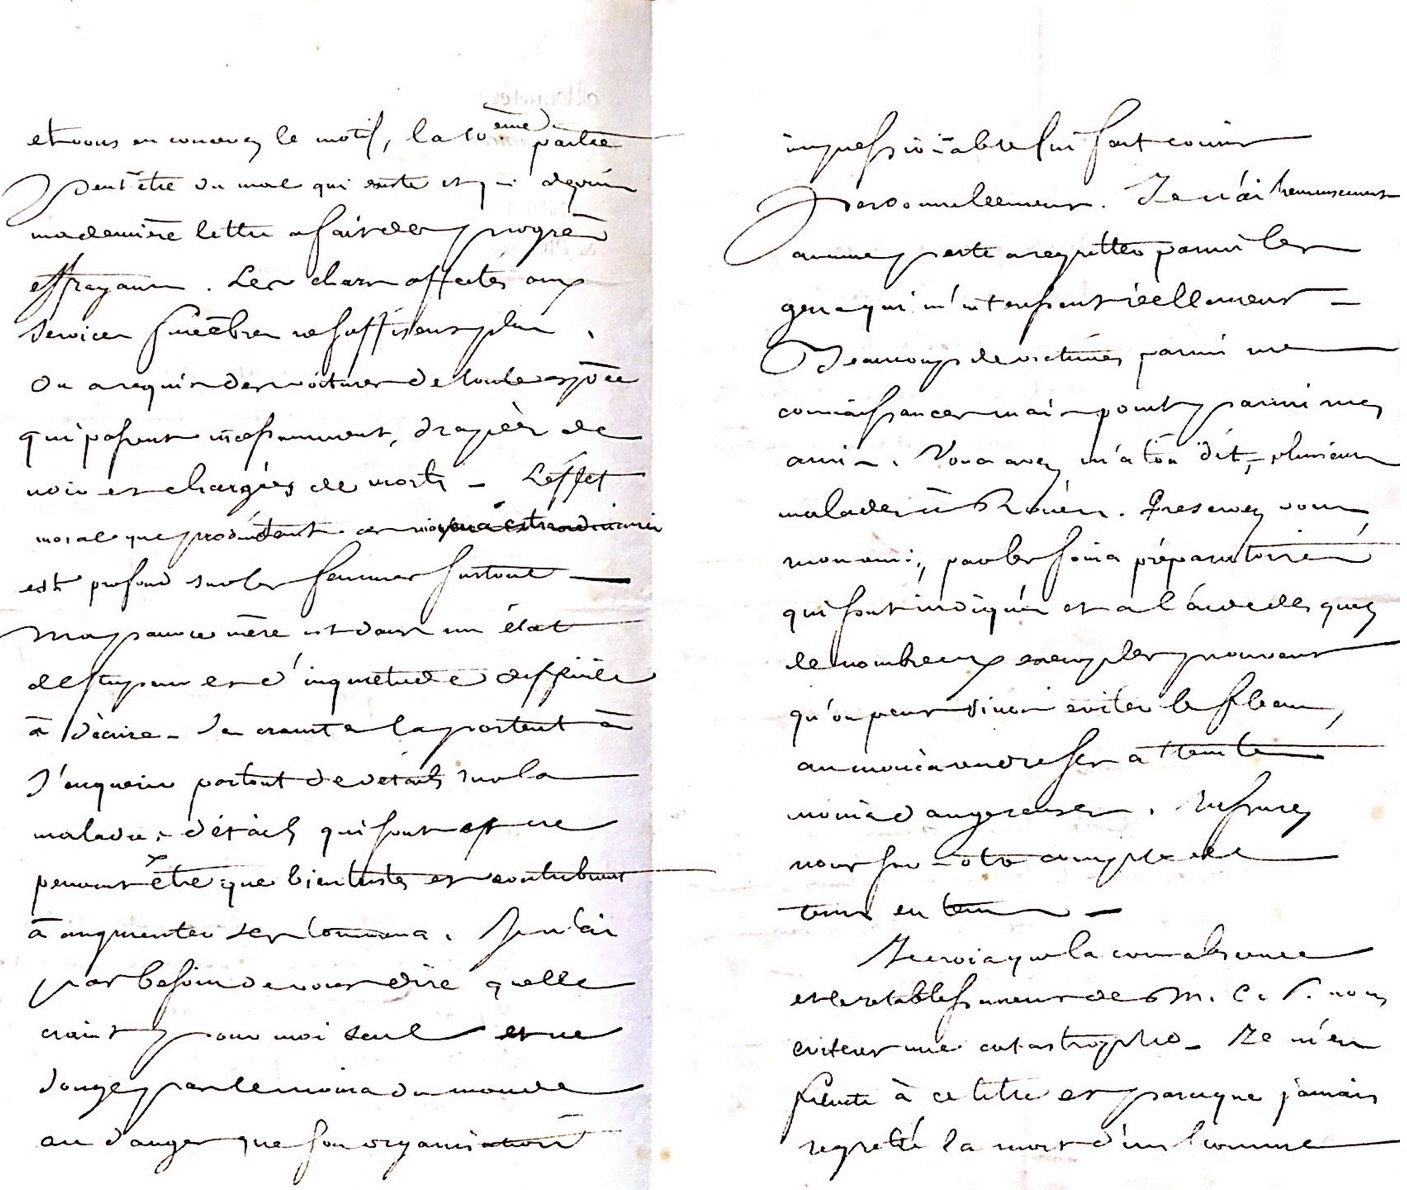 et vous en concevez le motif, la 10ème partie
peut être du mal qui existe et qui depuis
ma dernière lettre a fait des progrès
effrayans. Les chars affectés aux
services funèbres ne suffisent plus.
On a requis des voitures de toute espèce
qui passent incessamment, drapées de
noir et chargées de morts - L'effet
moral que produisent ces moyens extraordinaires
est profond sur les femmes surtout —
Ma pauvre mère est dans un état
de stupeur et d'inquiétude difficile
à décrire - Sa crainte la portent à
s'enquérir partout de détails sur la
maladie, détails qui sont et ne
peuvent être que bien tristes et contribuent
à augmenter ses tourmens. Je n'ai
pas besoin de vous dire quelle
craint pour moi seul et ne
songe pas le moins du monde
au danger que son organisation
impressionable lui fait courir
personnellement. Je n'ai heureusement
aucune perte a regretter parmi les
gens qui m'intéressent réellement -
Beaucoup de victimes parmi me
connaissances mais point parmi mes
amis. Vous avez, m'a t'on dit, plusieurs
malades à Rouen. Preservez vous
mon ami, par les soins préparatoires
qui sont indiqués et a l'aide des quels
de nombreux exemples prouvent
qu'on peut sinon éviter le fleau,
au moins rendre ses atteintes
moins dangereuses. Ecrivez
nous sur votre compte de
tems en tems —
Je crois que la convalescence
et le retablissement de M. C. P. nous
evitent une catastrophe - Je m'en
felicite à ce titre et parceque jamais
regretté la mort d'un homme